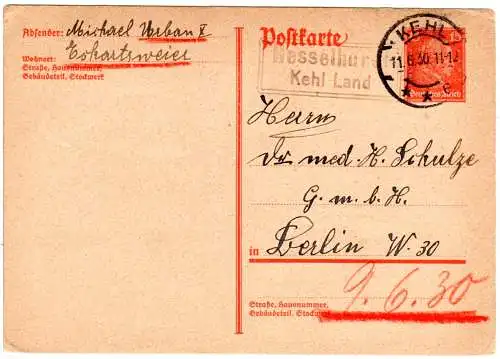 Absender: Michael Urban I
Wohnort: Eckartsweier
Straße, Hausnummer,
Gebäudeteil, Stockwerk
Postkarte
Hesselhurst
Kehl Land
KEHL
11.6.30.11-12
15
Deutsches Reich
Herrn
Dr med. H. Schulze
G. m. b. H.
in Berlin W. 30
9.6.30
Straße, Hausnummer,
Gebäudeteil, Stockwerk